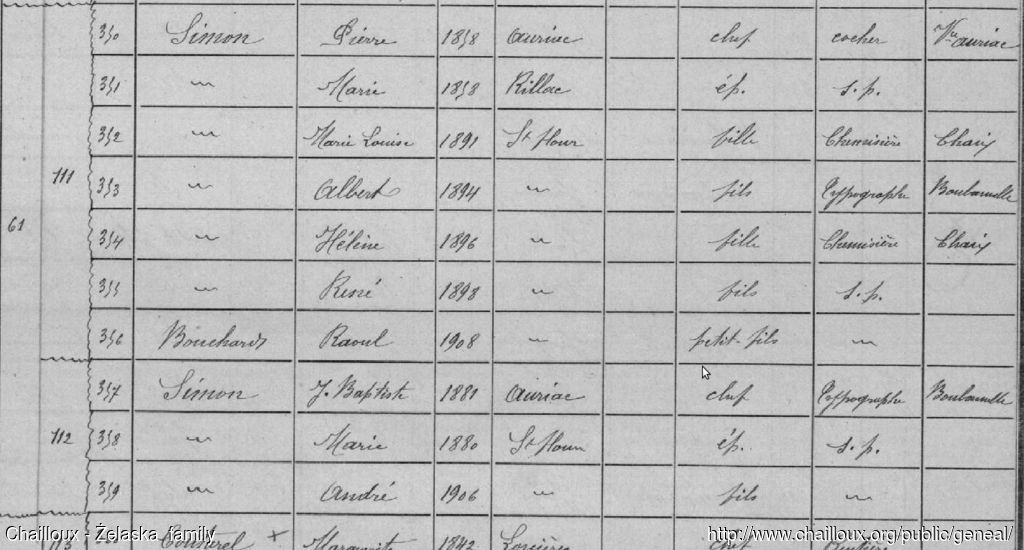 350 Simon Pierre 1858 Auriac chef cocher Vve Auriac
351 〃 Marie 1858 Rillac ép. s. p.
352 〃 Marie Louise 1891 St flour fille Chemisière Chaix
111
353 〃 Albert 1894 〃 fils Typographe Boubounelle
61
354 〃 Hélène 1896 〃 fille Chemisière Chaix
355 〃 René 1898 〃 fils s. p.
356 Bouchard Raoul 1908 〃 petit-fils 〃
357 Simon J. Baptiste 1881 Auriac chef Typographe Boubounelle
112 358 〃 Marie 1880 St flour ép. s. p.
359 〃 André 1906 〃 fils 〃
113 Marguerite 1842 Lorcières chef
Chailloux - Żelaska family
http://www.chailloux.org/public/geneal/